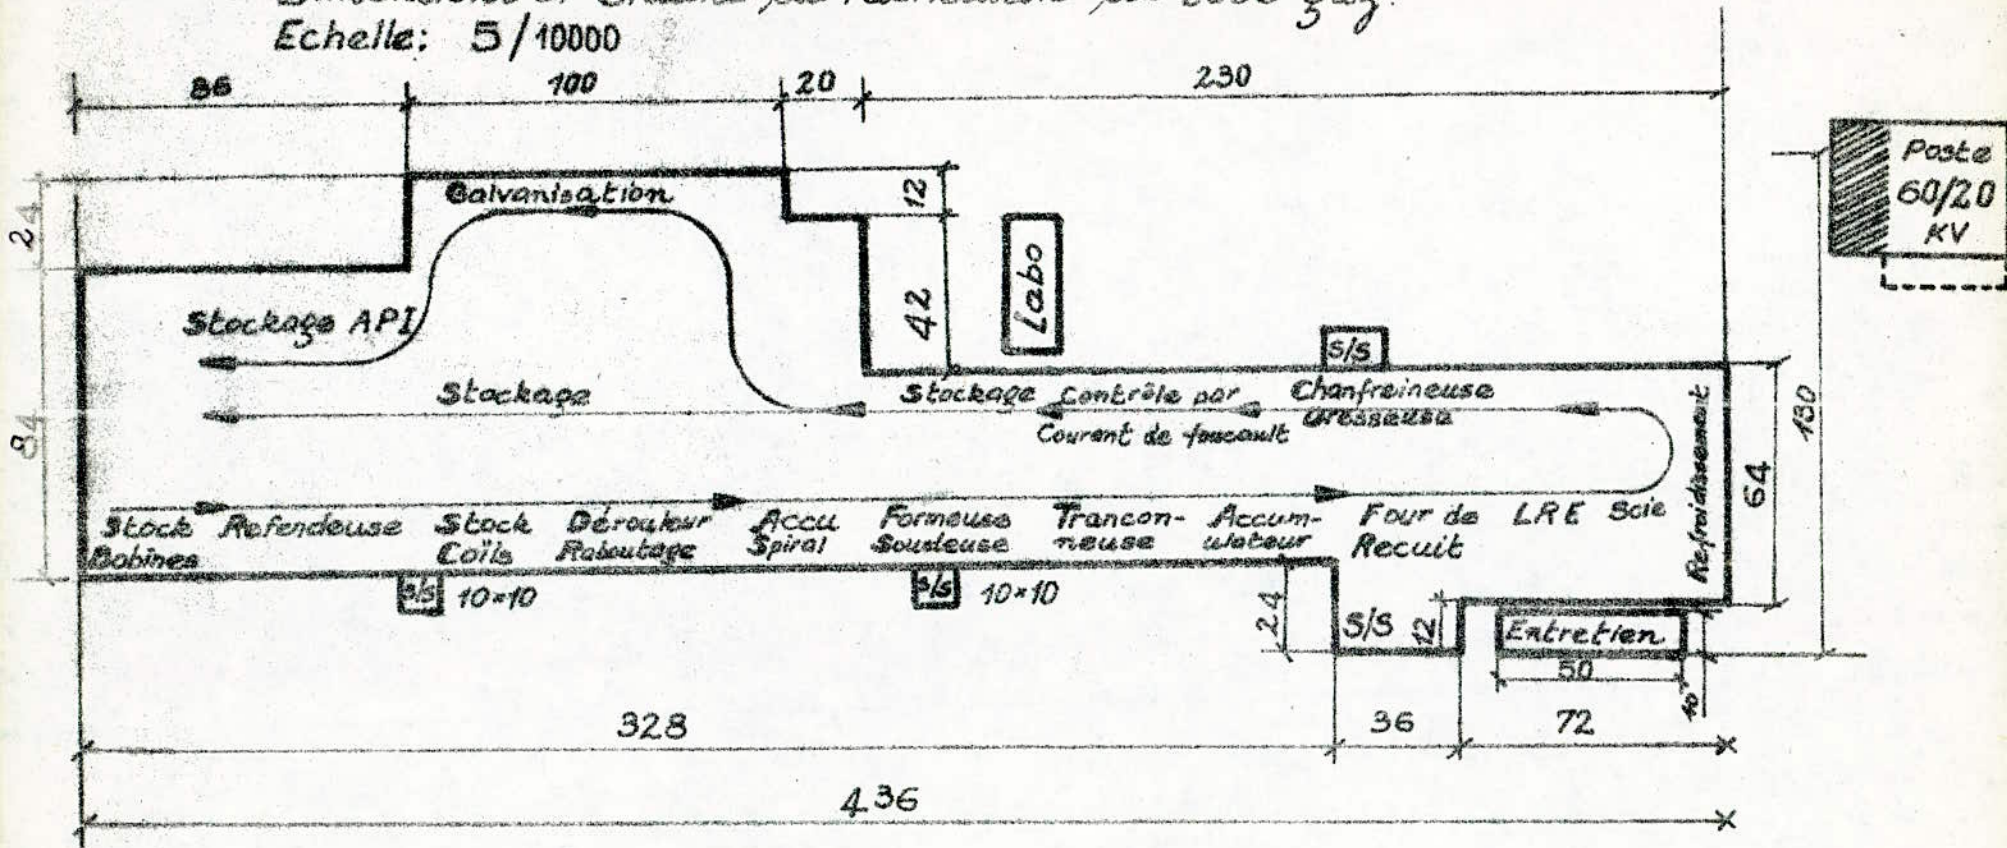 Echelle: 5/10000
86 100 20 230
Poste
60/20
KV
Galvanisation
12
24
Labo
42
Stockage API
S/S
130
Stockage
Stockage
Contrôle par
Courant de foucault
Chanfreineuse
dresseuse
Refroidissement
64
84
Stock
Bobines
Refendeuse
Stock
Coïls
Dérouleur
Raboutage
Accu
Spiral
Formeuse
Soudeuse
Trancon-
neuse
Accum-
ulateur
Four de
Recuit
LRE
Scie
S/S 10×10
S/S 10×10
24
S/S
12
Entretien
50
10
328 36 72
436